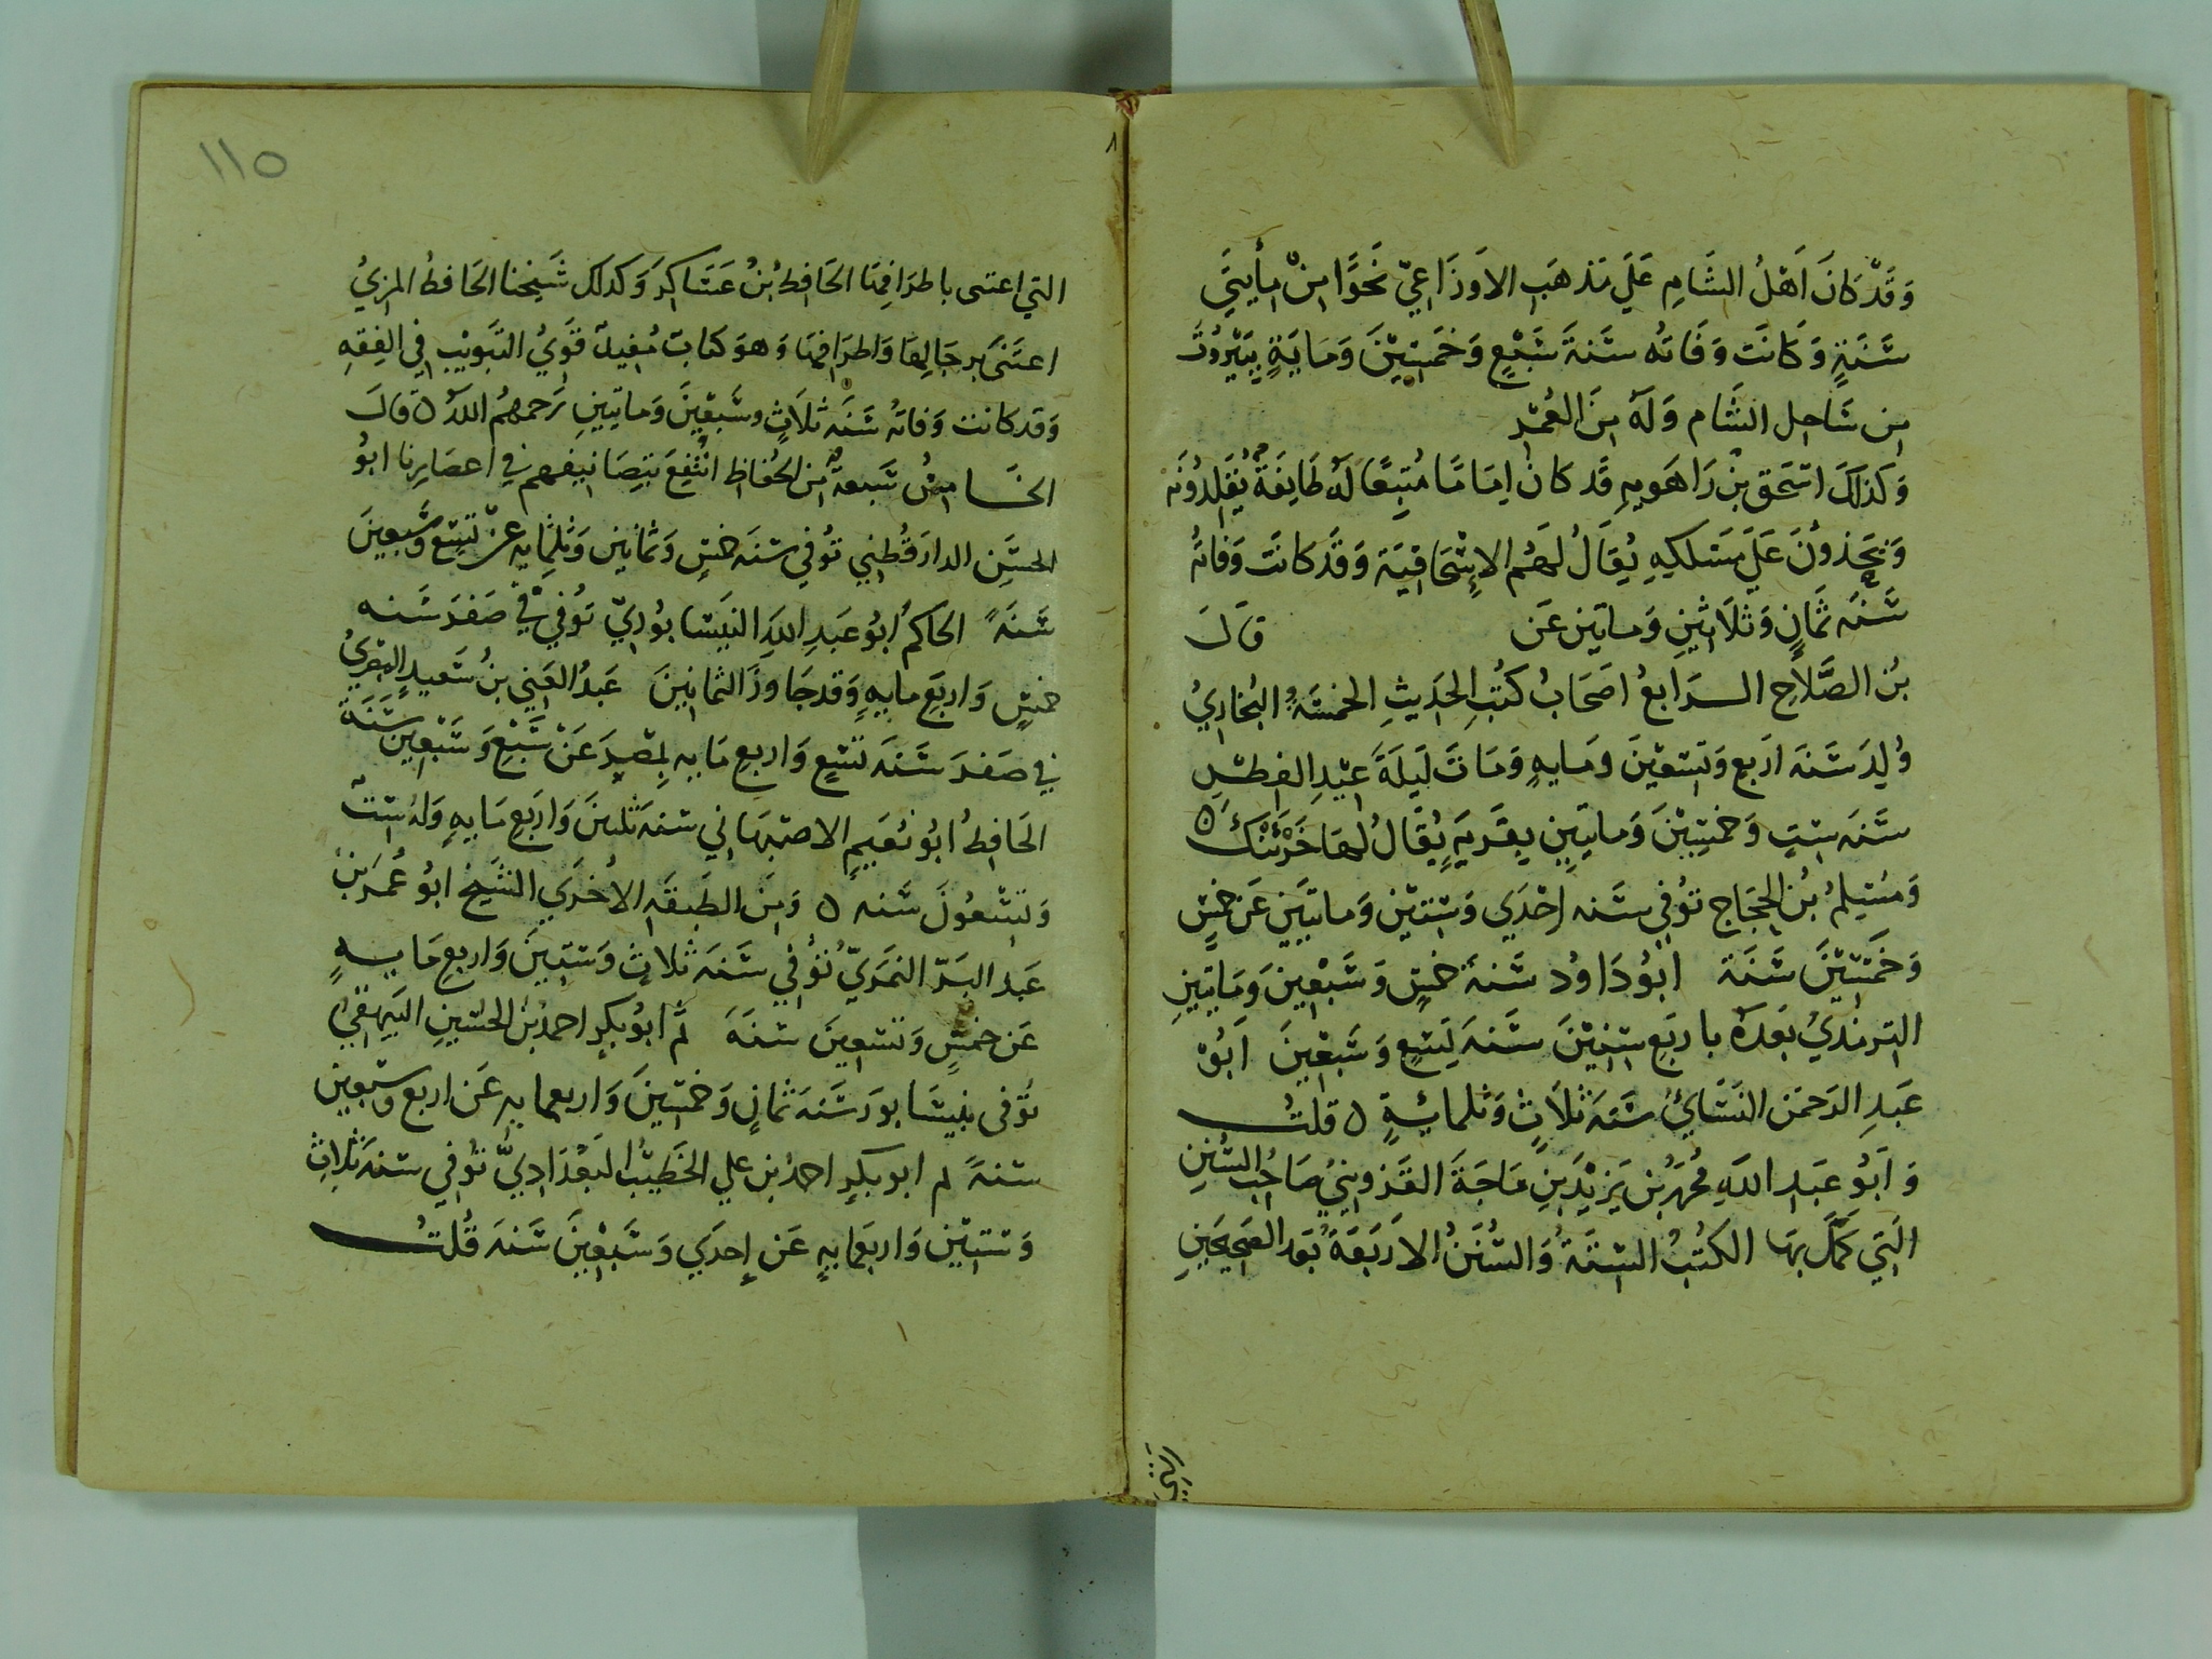 وَقَدْ كَانَ اَهْلُ الشَّامِ عَلَي مَذهَبِ الاَوزَاعِيّ نَحوًا مِنْ مِأيتَي
سَنَةٍ وَكَانَت وَفَاتُه سَنَةَ سَبْعٍ وَخَمسِيْنَ وَمَايَةٍ بِبَيْرُوْتَ
مِن سَاحِل الشَّام وَلَهُ مِنَ العُمْرِ
وَكَذلَكَ اسْحَق بنُ رَاهَويهِ قَد كانَ اِمَامًا مُتبِعًا لَهُ طَايِفَةٌ يُقَلِدُونَه
وَيَجتَهِدُونَ عَلَي مَسْلكِهِ يُقَالُ لهَم الاِسْحَاقيَة وَقَد كانَت وَفاتُه
سَنَه ثَمَانٍ وَثَلَاثِيْنِ وَمايَتينِ عَن قَالَ
بنُ الصَّلَاحِ الرَابعُ اصَحَابُ كتُبِ الحَدِيثِ الخمسَة البُخَارِيُ
وُلِدَ سَنَه اربَع وَتسْعِيْنَ ومايهٍ وَمَاتَ لَيلَةَ عِيْدِ الفِطْرِ
سَنَه سِتٍ وَخمسِيْنَ وَمايَتينِ بِقَريَةٍ يُقَالُ لهَا خَرْتَنْكُ ٥
وَمُسْلِمُ بُن الحجَاج تُوُفِي سَنَه اِحْدَي وَسِتيْن وَمايَتيَنِ عَن خمسٍ
وَخَمْسِيْنَ سَنَة ابُو دَاوُد سَنَة خمسٍ وَسَبْعِينَ وَمَايتينِ
التِرمذيُ بَعَدَهُ باربَع سِنيْنَ سَنَهَ تِسْعٍ وَسَبْعِينَ اَبُوْ
عَبدِ الرَحمَن النَسَائيُ سَنَه ثَلَاثٍ وَثلمائةٍ ٥ قلتُ
وَابُو عَبدِ اللهِ مُحَمَدُ بن يَزِيْدَ بنِ مَاجَةَ القَزوِينيُ صَاحُب السُنَنِ
الَتِي كَمَّلَ بهَا الكتُبُ السِتَة وَالسُنَنُ الاَربَعَة بَعَد الصَحِيحَينِ
التي
١١٥
التي اعتنى باطرَافِهَا الحَافِظُ بْنُ عَسَاكِرَ وَكَذلك شَيخنا الحَافظُ المزيُ
اعتَنَى برجَالِهَا وَاطرَافِهَا وَهوَ كتابٌ مُفيدٌ قَوَيُ التَبوِيْبِ فِي الفِقهِ
وَقد كانت وَفاتُه سَنَه ثلَاثٍ وسَبْعِيْنَ وَمايَتينِ رَحمهُم اللهُ ٥ قالَ
الخَامسُ سَبعةٌ مِن الحُفاظ انتُفِعَ بتِصَانيفهم في اعصَارِنا ابوُ
الحسَن الدارَقُطني تُوُفي سَنه خمسٍ وَثمانين وَثلثِمايه عن تِسْع وَسَبعينَ
سَنَةً الحاكمُ ابُو عَبدِ اللهِ النيسَابوُريّ تُوُفي فِي صَفرَ سَنه
خمسٍ وَاربَعِ مايهٍ وَقد جَاوزَ الثمانِينَ عَبدُ الغَنِي بنُ سَعيدٍ المِصْرِيُ
في صَفرَ سَنَه تسْعٍ وَاربعِ مايه بِمِصْرَ عَنْ سَبْعٍ وَسَبْعِيْنَ سَنَة
الحَافِظُ ابُو نُعَيمٍ الاصْبَهَاني سَنه ثلثينَ وَاربَعِ مَايهٍ وَلهُ سِتٌ
وَتِسْعُونَ سَنه ٥ وَمِنَ الطبقَهِ الاُخرَي الشَيخ ابُو عُمَرَ بنُ
عَبد البَرّ النمَرَيّ تُوُفي سَنَه ثلاثٍ وَستينَ وَاربعِ مَايهٍ
عَن خمسٍ وَتسْعِينَ سَنَةَ ثم ابوُ بكرٍ احمدُ بنُ الحسَينِ البَيهقيُ
تُوفى بنيسَابورَ سَنَه ثمانٍ وَخمسينَ وَاربعمايه عَن اربع وَسَبعين
سَنهً ثم ابو بكرٍ احمدُ بن علي الخَطِيْبُ البَغدَادِيُّ تُوُفي سَنهَ ثلاثِ
وَستيْن وَاربعمايهٍ عَن إِحدَي وَسَبْعِيْنَ سَنَه قُلتُ